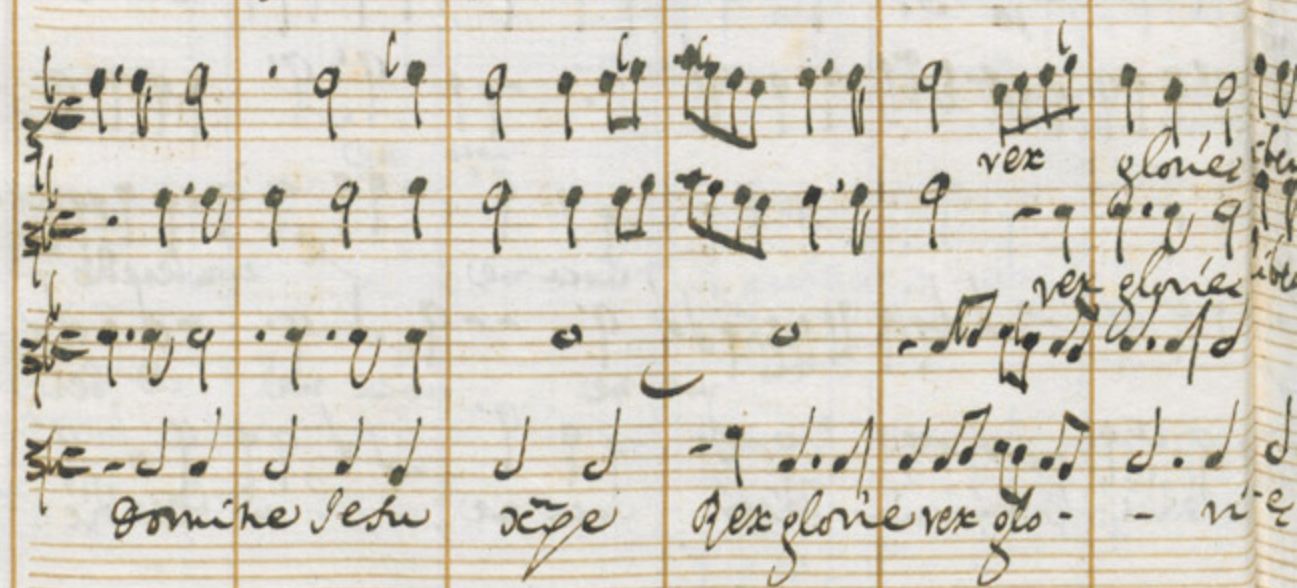 rex glorie
rex glorie
Domine Jesu xpe Rex glorie rex glo - - ri - e